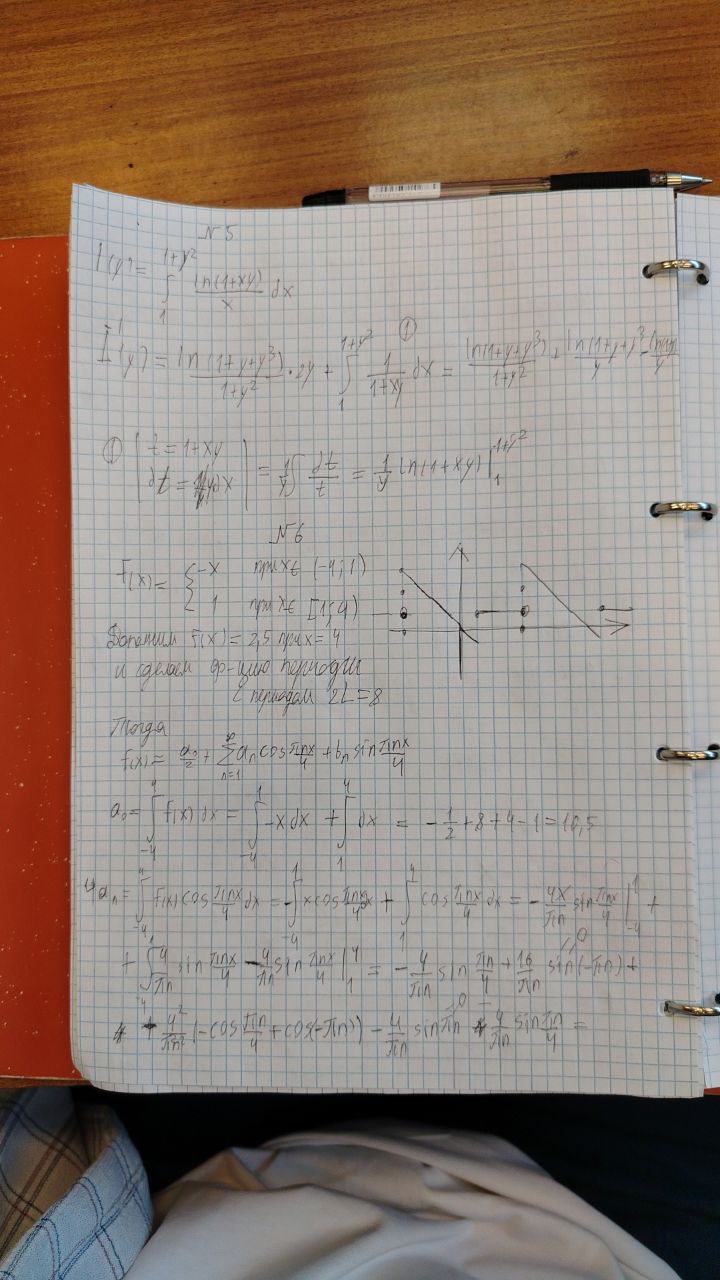 №5
I(y) = ∫_1^{1+y²} ln(1+xy)/x dx
I'(y) = ln(1+y+y³)/(1+y²) · 2y + ∫_1^{1+y²} 1/(1+xy) dx =^① ln(1+y+y³)/(1+y²) + ln(1+y+y³)/y -
① | t = 1+xy
dt = ydx | = 1/y ∫ dt/t = 1/y ln(1+xy) |_1^{1+y²}
№6
f(x) = { -x при x∈ (-4;1)
1 при x∈ [1;4)
Дополним f(x) = 2,5 при x = 4
и сделаем ф-цию
с периодом 2L = 8
Тогда
f(x) = a₀/2 + ∑_{n=1}^∞ aₙ cos πnx/4 + bₙ sin πnx/4
a₀ = ∫_{-4}^4 f(x) dx = ∫_{-4}^1 -x dx + ∫_1^4 dx = -1/2 + 8 + 4 - 1 = 10,5
4aₙ = ∫_{-4}^4 f(x) cos πnx/4 dx = -∫_{-4}^1 x cos πnx/4 dx + ∫_1^4 cos πnx/4 dx = - 4x/πn sin πnx/4 |_{-4}^1 +
+ ∫_{-4}^1 4/πn sin πnx/4 4/πn sin πnx/4 |_1^4 = - 4/πn sin πn/4 + 16/πn sin(-πn) +
+ 4²/π²n² (-cos πn/4 + cos(-πn)) - 4/πn sin πn 4/πn sin πn/4 =